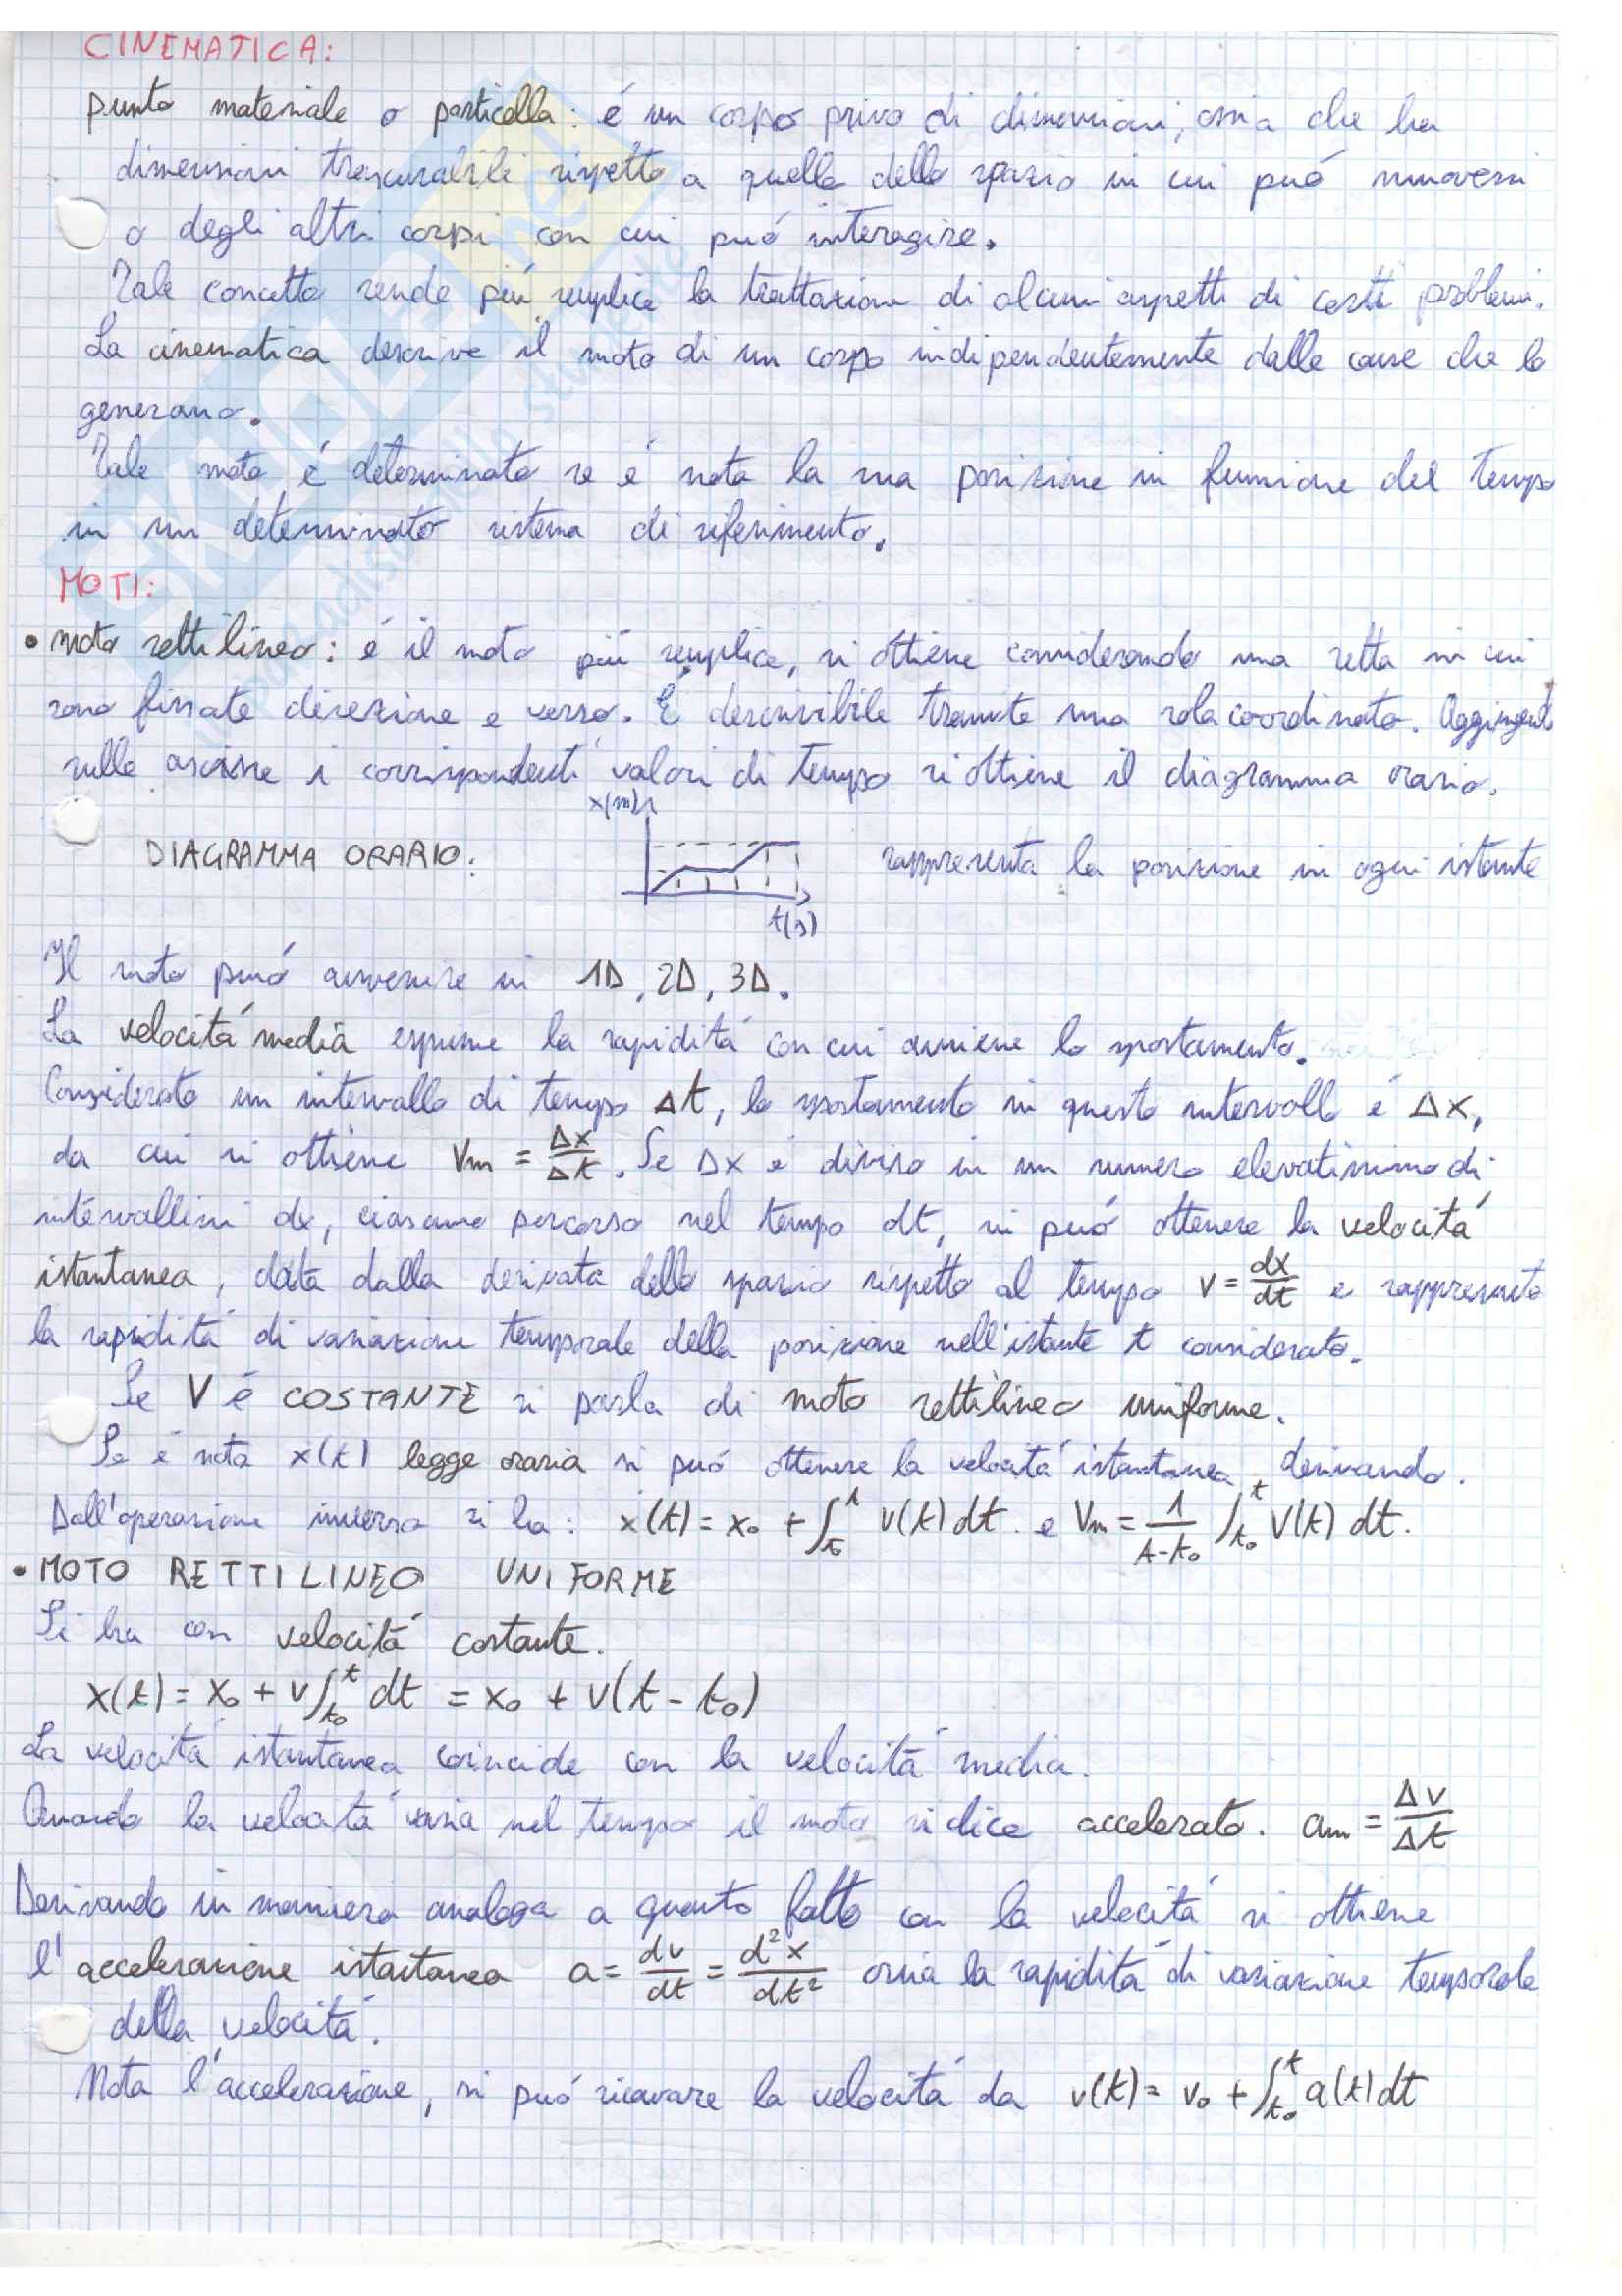 CINEMATICA:
punto materiale o particella: é un corpo privo di dimensioni, ossia che ha
dimensioni trascurabili rispetto a quelle dello spazio in cui puó muoversi
o degli altri corpi con cui puó interagire.
Tale concetto rende piú semplice la trattazione di alcuni aspetti di certi problemi.
La cinematica descrive il moto di un corpo indipendentemente dalle cause che lo
generano.
Tale moto é determinato se é nota la sua posizione in funzione del tempo
in un determinato sistema di riferimento.
MOTI:
• moto rettilineo: é il moto piú semplice, si ottiene considerando una retta in cui
sono fissate direzione e verso. É descrivibile tramite una sola coordinata. Aggiungendo
sulle ascisse i corrispondenti valori di tempo si ottiene il diagramma orario.
x(m)
DIAGRAMMA ORARIO: rappresenta la posizione in ogni istante
t(s)
Il moto puó avvenire in 1D, 2D, 3D.
La velocitá media esprime la rapiditá con cui avviene lo spostamento.
Considerato un intervallo di tempo Δt, lo spostamento in questo intervallo é Δx,
da cui si ottiene Vm = Δx/Δt. Se Δx é diviso in un numero elevatissimo di
intervallini dx, ciascuno percorso nel tempo dt, si puó ottenere la velocitá
istantanea, data dalla derivata dello spazio rispetto al tempo v = dx/dt e rappresenta
la rapiditá di variazione temporale della posizione nell'istante t considerato.
Se V é COSTANTE si parla di moto rettilineo uniforme.
Se é nota x(t) legge oraria si puó ottenere la velocitá istantanea, derivando.
Dall'operazione inversa si ha: x(t) = x₀ + ∫_{t₀}^{t} v(t) dt. e Vm = 1/(t-t₀) ∫_{t₀}^{t} V(t) dt.
• MOTO RETTILINEO UNIFORME
Si ha con velocitá costante.
x(t) = x₀ + v∫_{t₀}^{t} dt = x₀ + v(t - t₀)
La velocitá istantanea coincide con la velocitá media.
Quando la velocitá varia nel tempo il moto si dice accelerato. am = Δv/Δt
Derivando in maniera analoga a quanto fatto con la velocitá si ottiene
l'accelerazione istantanea a = dv/dt = d²x/dt² ossia la rapiditá di variazione temporale
della velocitá.
Nota l'accelerazione, si puó ricavare la velocitá da v(t) = v₀ + ∫_{t₀}^{t} a(t) dt